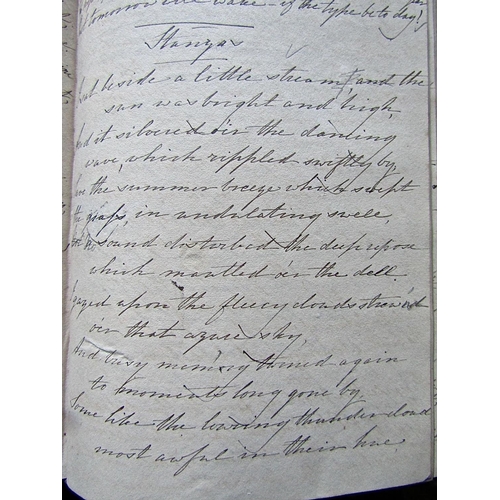 tomorrow we wake - if the type be to day!
Stanzas
beside a little stream, and the
sun was bright and high,
And it silvered o'er the dancing
wave, which rippled swiftly by,
the summer breeze which swept
the grass, in undulating swell,
sound disturbed the deep repose
which mantled o'er the dell.
I gazed upon the fleecy clouds strew'd
o'er that azure sky,
And busy memory turned again
to moments long gone by
Some like the lowering thunder cloud
most awful in their hue